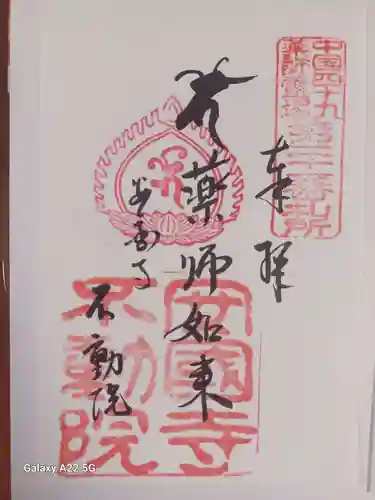 中国四十九
薬師霊場
第二十番所
奉拝
薬師如来
安国寺
不動院
安國寺
不動院
Galaxy A22 5G